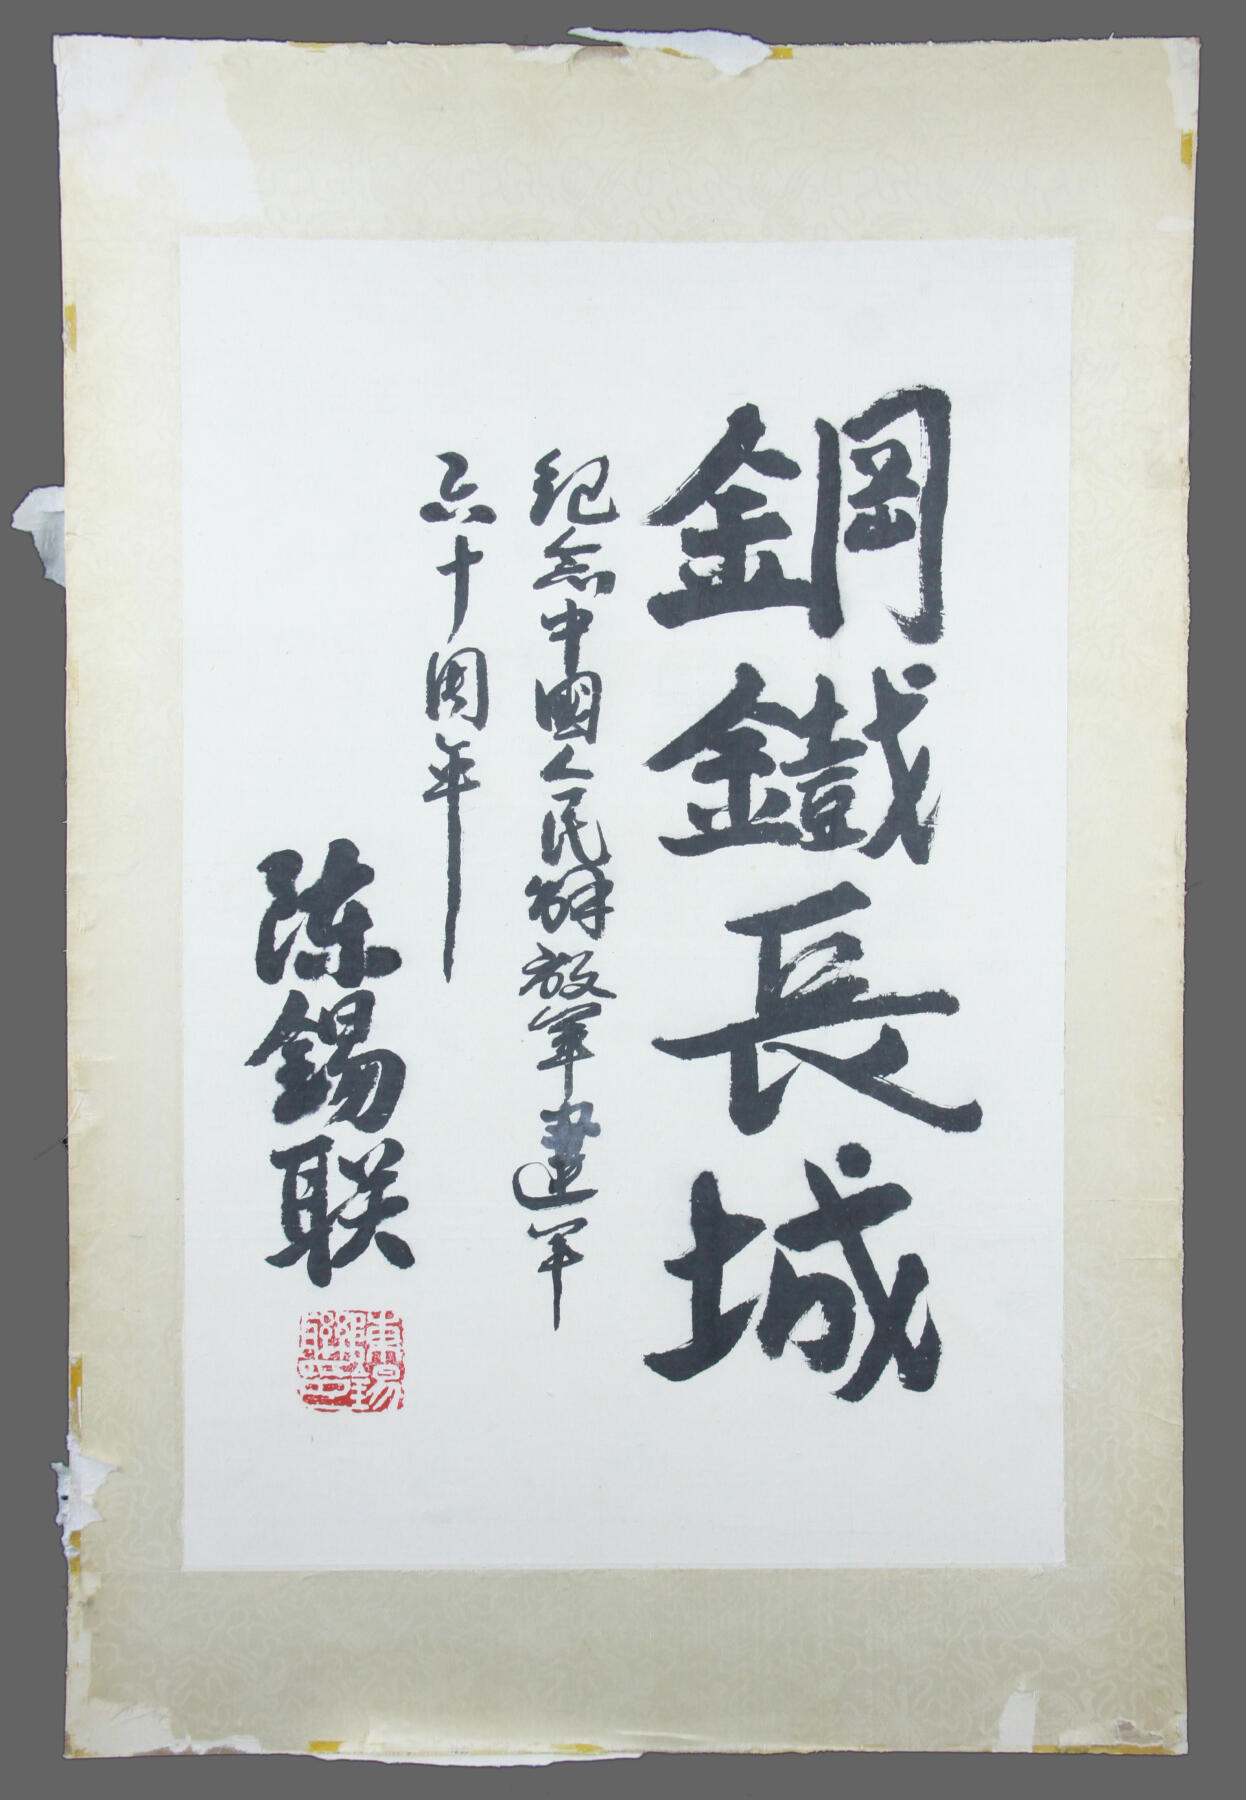 鋼鐵長城
纪念中國人民解放军建军
六十周年
陈錫联
陳錫聯印